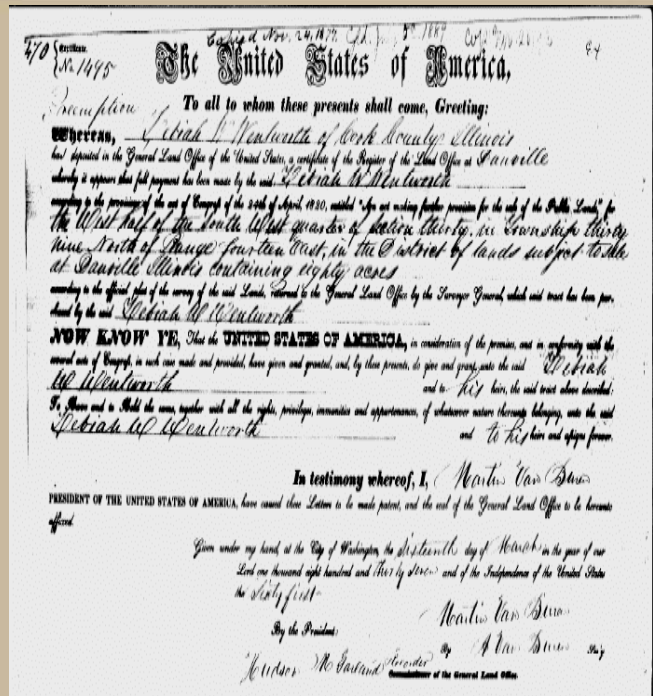 Copied Nov. 24, 1879. 1889
470 { Certificate
No. 1495
The United States of America,
Preemption To all to whom these presents shall come, Greeting:
Whereas, Zebiah W Wentworth of Cook County Illinois
has deposited in the General Land Office of the United States, a certificate of the Register of the Land Office at Danville
whereby it appears that full payment has been made by the said Zebiah W Wentworth
according to the provisions of the act of Congress of the 24th of April, 1820, entitled "An act making further provision for the sale of the Public Lands," for
the West half of the South West quarter of Section thirty, in Township thirty
nine North of Range fourteen East, in the District of lands subject to sale
at Danville Illinois containing eighty acres
according to the official plat of the survey of the said Lands, returned to the General Land Office by the Surveyor General, which said tract has been pur-
chased by the said Zebiah W Wentworth
NOW KNOW YE, That the UNITED STATES OF AMERICA, in consideration of the premises, and in conformity with the
several acts of Congress, in such case made and provided, have given and granted, and, by these presents, do give and grant, unto the said Zebiah
W Wentworth and to his heirs, the said tract above described:
To Have and to Hold the same, together with all the rights, privileges, immunities and appurtenances, of whatsoever nature thereunto belonging, unto the said
Zebiah W Wentworth and to his heirs and assigns forever.
In testimony whereof, I, Martin Van Buren
PRESIDENT OF THE UNITED STATES OF AMERICA, have caused these Letters to be made patent, and the seal of the General Land Office to be hereunto
affixed.
Given under my hand, at the City of Washington, the sixteenth day of March in the year of our
Lord one thousand eight hundred and thirty seven and of the Independence of the United States
the sixty first
Martin Van Buren
By the President:
By A Van Buren Sec'y
Hudson M Garland Recorder
Commissioner of the General Land Office.